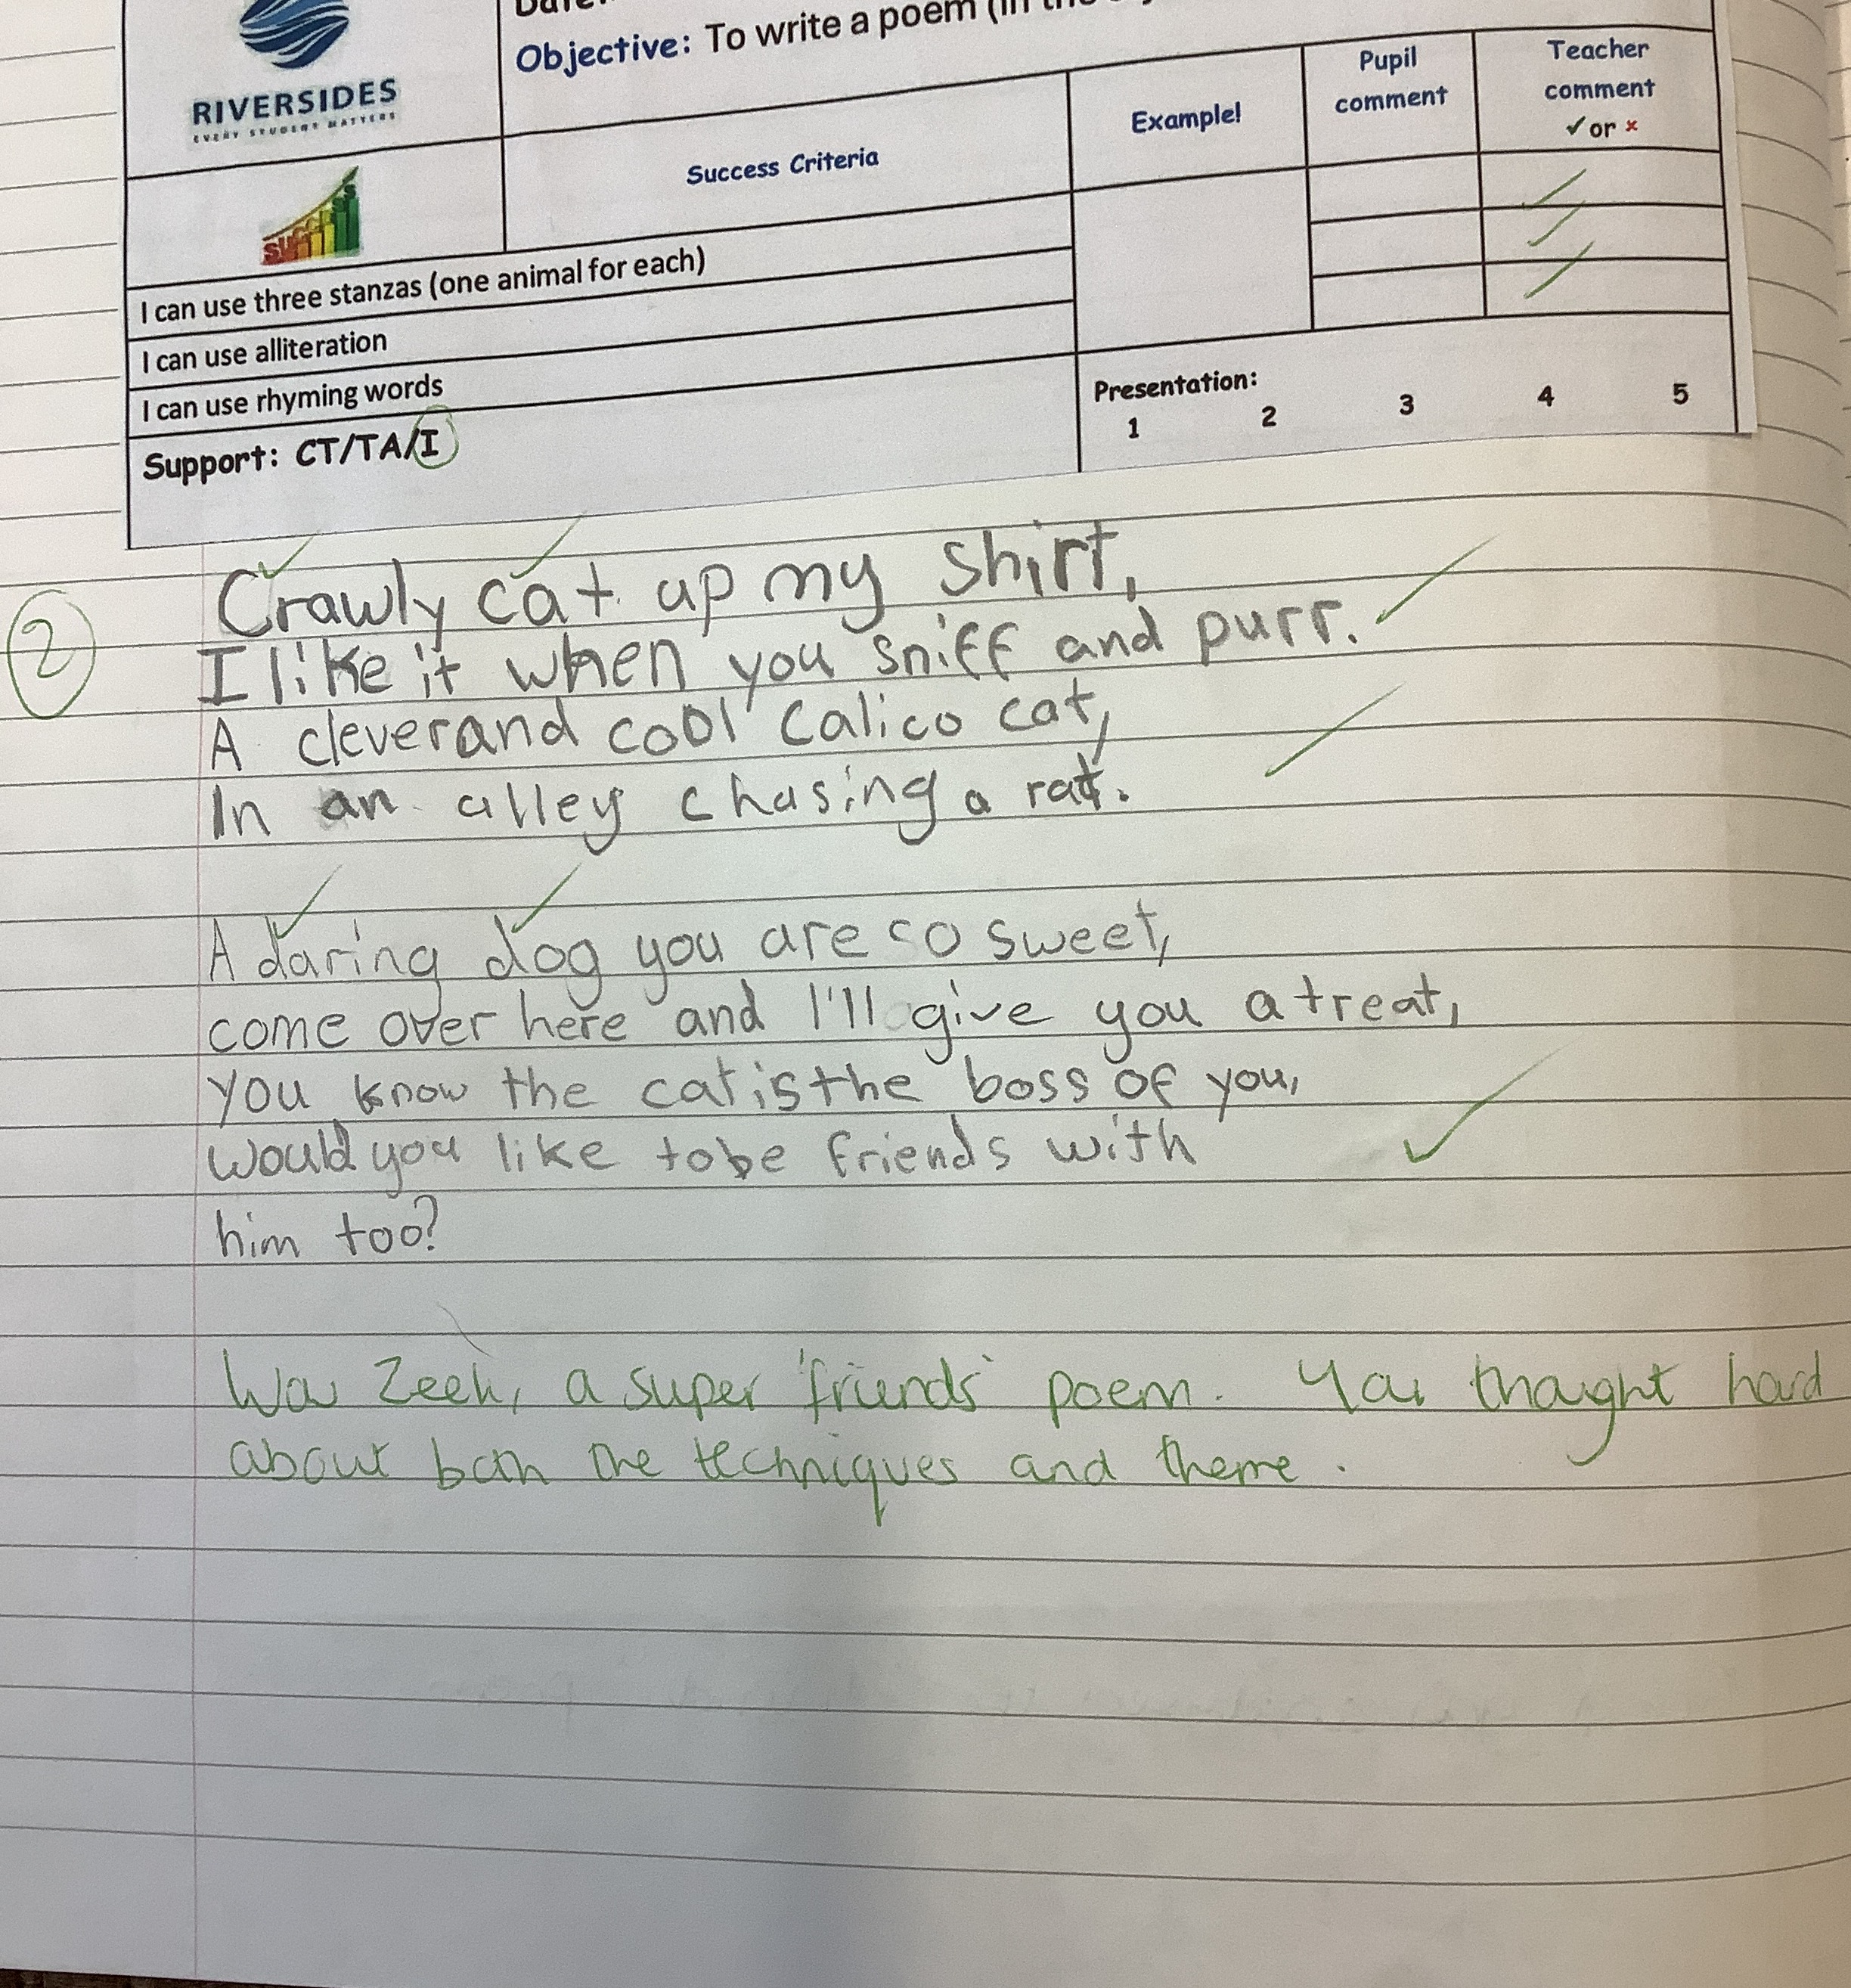 Objective: To write a poem (in the
RIVERSIDES
EVERY STUDENT MATTERS
Success Criteria
Example!
Pupil comment
Teacher comment
✓ or ×
success
I can use three stanzas (one animal for each)
I can use alliteration
I can use rhyming words
Support: CT/TA/I
Presentation:
1 2 3 4 5
2
Crawly cat up my shirt,
I like it when you sniff and purr.
A clever and cool calico cat,
In an alley chasing a rat.
A daring dog you are so sweet,
come over here and I'll give you a treat,
you know the cat is the boss of you,
would you like to be friends with
him too?
Wow Zeek, a super 'friends' poem. You thought hard
about both the techniques and theme.